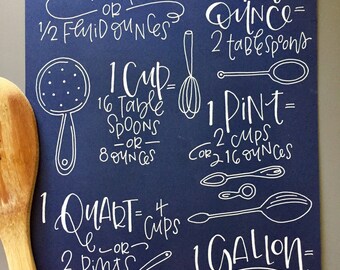 OR
1/2 FLUID OUNCES
OUNCE=
2 tablespoons
1 CUP=
16 TABLE
SPOONS
OR
8 OUNCES
1 PINT=
2 CUPS
(OR) 16 OUNCES
1 QUART= 4
CUPS
OR
2 PINTS
1 GALLON=